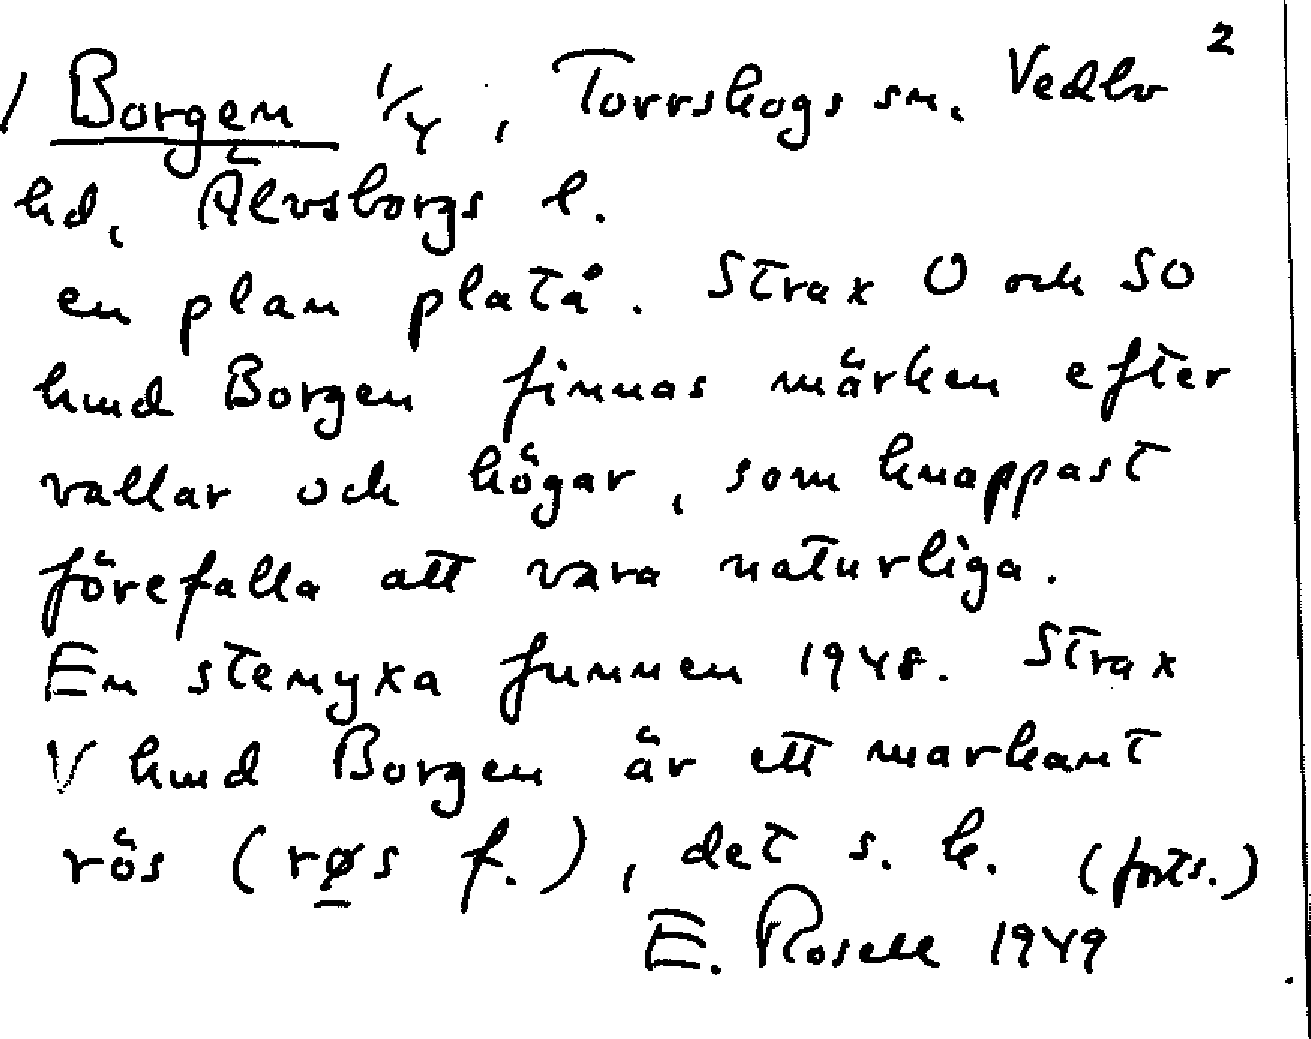 2
/ Borgen 1/4, Torrskogs sn. Vedbo
hd, Älvsborgs l.
en plan platå. Strax O och SO
hmd Borgen finnas märken efter
vallar och högar, som knappast
förefalla att vara naturliga.
En stenyxa funnen 1948. Strax
V hmd Borgen är ett markant
rös (røs f.), det s. k. (forts.)
E. Rosell 1949